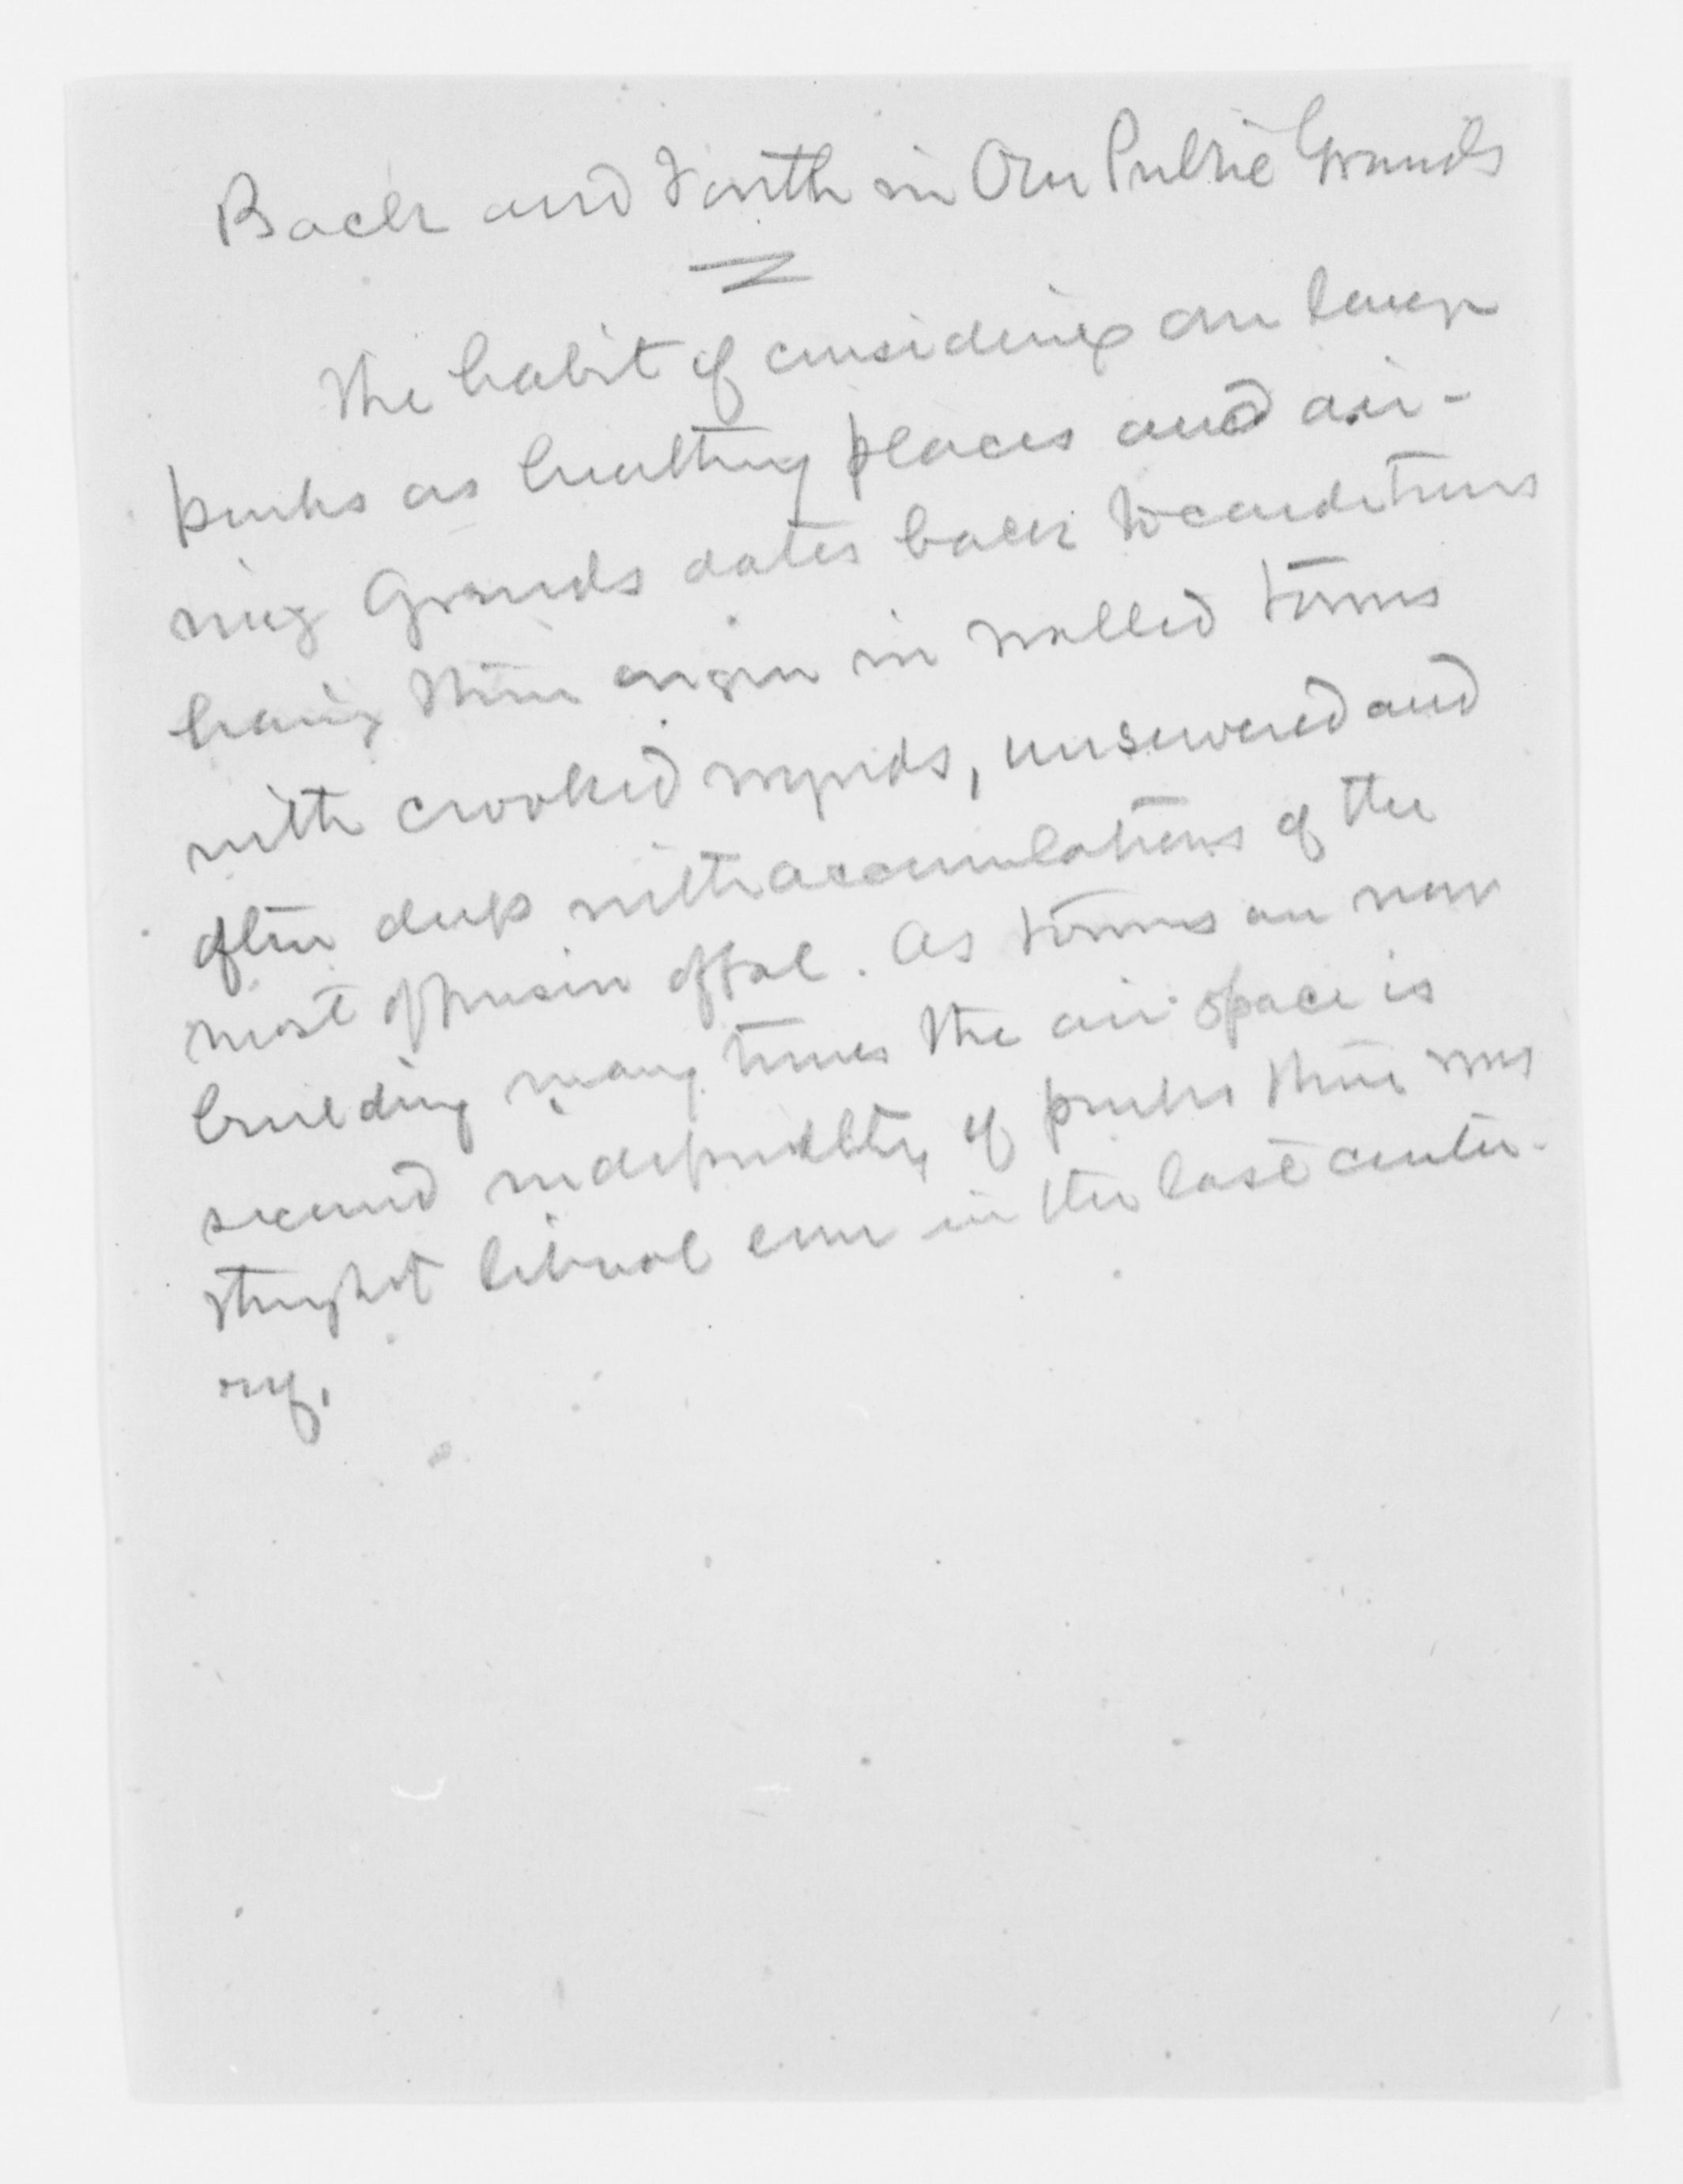 Back and Forth in Our Public Grounds
The habit of considering our large
parks as breathing places and air-
ing Grounds dates back to conditions
having their origin in walled towns
with crooked wynds, unsewered and
often deep with accumulations of the
most offensive offal. As towns are now
building many times the air space is
secured independently of parks there was
thought liberal even in the last centu-
ry.